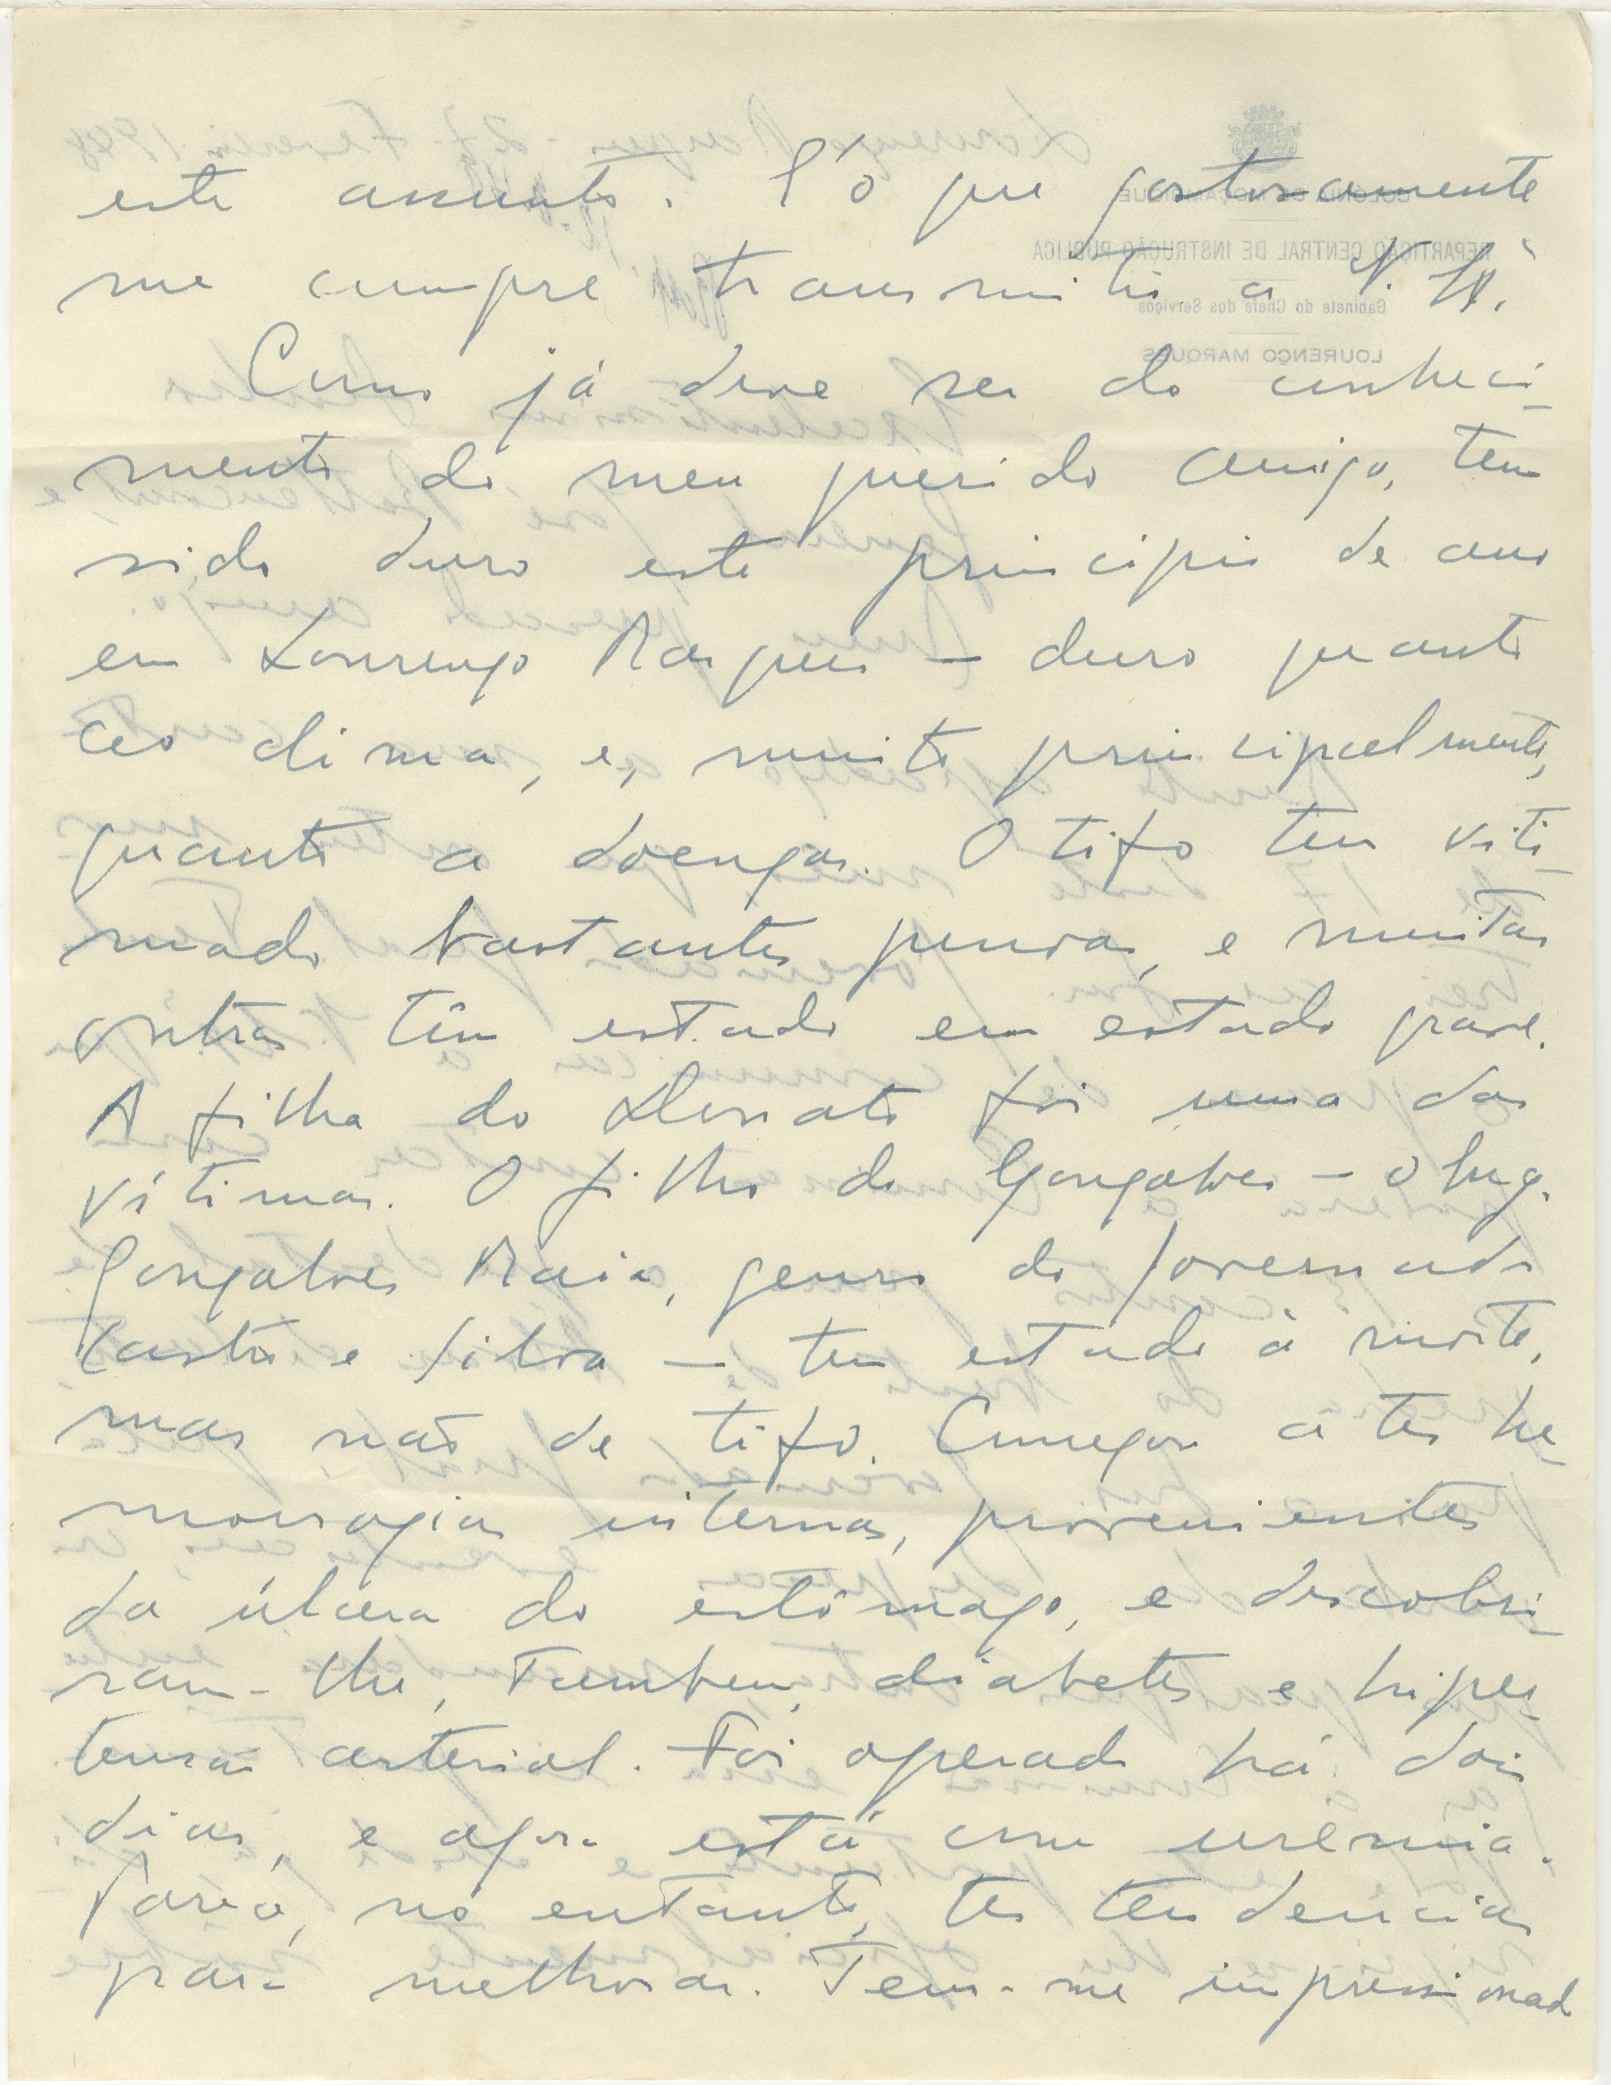 este assunto. É o que gostosamente
me cumpre transmitir a V. Ex.ª
Como já deve ser do conheci-
mento do meu querido amigo, tem
sido duro este principio de ano
em Lourenço Marques – duro quanto
ao clima, e, muito principalmente,
quanto a doenças. O tifo tem viti-
mado bastantes pessoas, e muitas
outras têm estado em estado grave.
A filha do Donato foi uma das
vítimas. O filho do Gonçalves – o Eng.
Gonçalves Maia, genro do Governador
Castro e Silva – tem estado à morte,
mas não de tifo. Começou a ter he-
morragias internas, provenientes
da úlcera do estômago, e descobri-
ram-lhe, tambem, diabetes e hiper-
tensão arterial. Foi operado há dois
dias, e agora está com urémia.
Parece, no entanto, ter tendencias
para melhorar. Tem-me impressionado